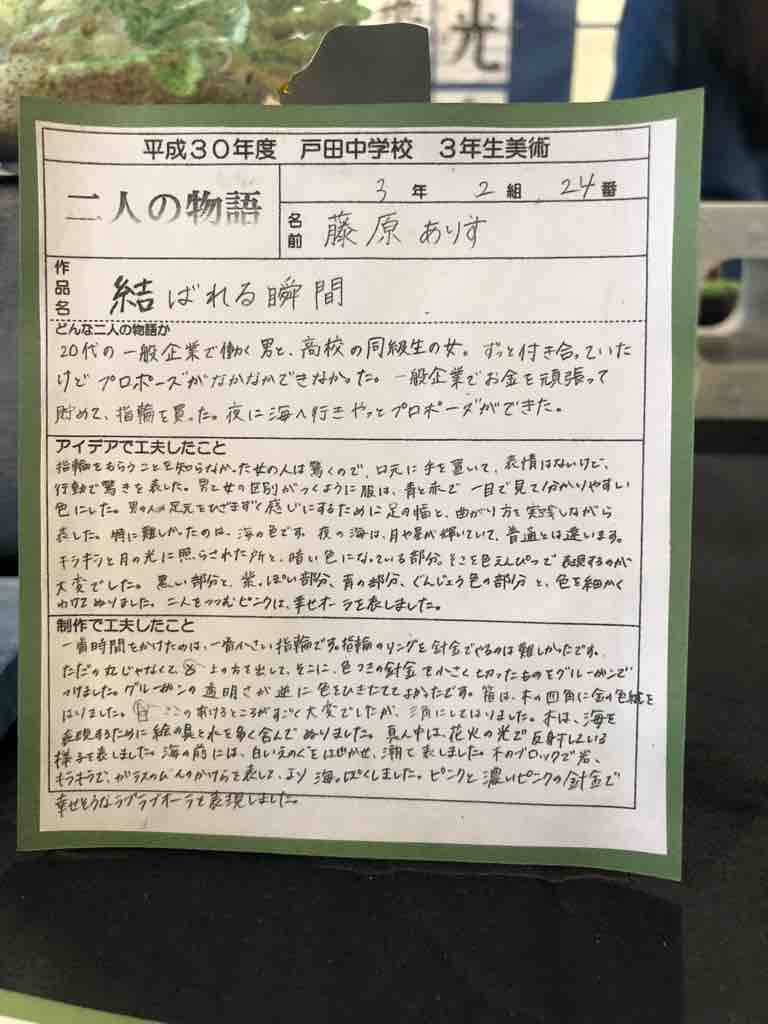 光
平成30年度 戸田中学校 3年生美術
二人の物語
3年 2組 24番
名前 藤原ありす
作品名 結ばれる瞬間
どんな二人の物語か
20代の一般企業で働く男と、高校の同級生の女。ずっと付き合っていた
けどプロポーズがなかなかできなかった。一般企業でお金を頑張って
貯めて、指輪を買った。夜に海へ行きやっとプロポーズができた。
アイデアで工夫したこと
指輪をもらうことを知らなかった女の人は驚くので、口元に手を置いて、表情はないけど、
行動で驚きを表した。男と女の区別がつくように服は、青と赤で一目で見て分かりやすい
色にした。男の人の足元をひざまずく感じにするために足の幅と、曲がり方を実践しながら
表した。特に難しかったのは、海の色です。夜の海は、月や星が輝いていて、普通とは違います。
キラキラと月の光に照らされた所と、暗い色になっている部分。そこを色えんぴつで表現するのが
大変でした。黒い部分と、紫っぽい部分、青の部分、ぐんじょう色の部分と、色を細かく
わけてぬりました。二人をつつむピンクは、幸せオーラを表しました。
制作で工夫したこと
一番時間をかけたのは、一番小さい指輪です。指輪のリングを針金でやるのは難しかったです。
ただの丸じゃなくて、上の方を出して、そこに、色つきの針金を小さく切ったものをグルーガンで
つけました。グルーガンの透明さが逆に色をひきたててよかったです。箱は、木の四角に金の色紙を
はりました。ここの あけるところがすごく大変でしたが、三角にしてはりました。木は、海を
表現するために絵の具と水を多く含んでぬりました。真ん中は、花火の光で反射している
様子を表しました。海の前には、白いえのぐをはばかせ、潮で表しました。木のブロックで岩、
キラキラで、ガラスのびんのかけらを表して、より海っぽくしました。ピンクと濃いピンクの針金で
幸せそうなラブラブオーラを表現しました。